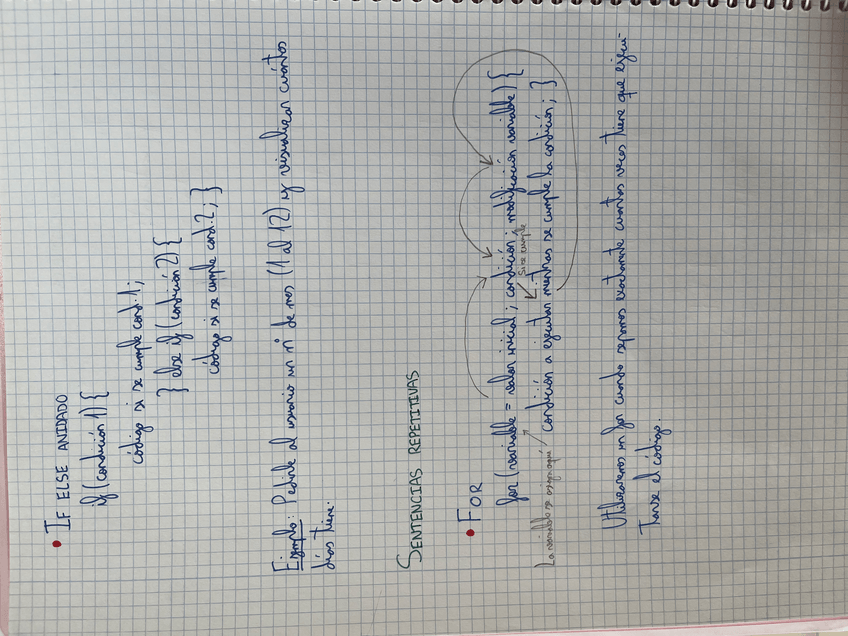 • IF ELSE ANIDADO
if (condición 1) {
código si se cumple cond. 1;
} else if (condición 2) {
código si se cumple cond. 2; }
Ejemplo: Pedirle al usuario un nº de mes (1 al 12) y visualizar cuántos
días tiene.
SENTENCIAS REPETITIVAS
• FOR
for (variable = valor inicial; condición; modificación variable) {
Si se cumple
condición a ejecutar mientras se cumple la condición; }
La variable se asigna aquí
Utilizaremos un for cuando sepamos exactamente cuantas veces tiene que ejecu-
tarse el código.